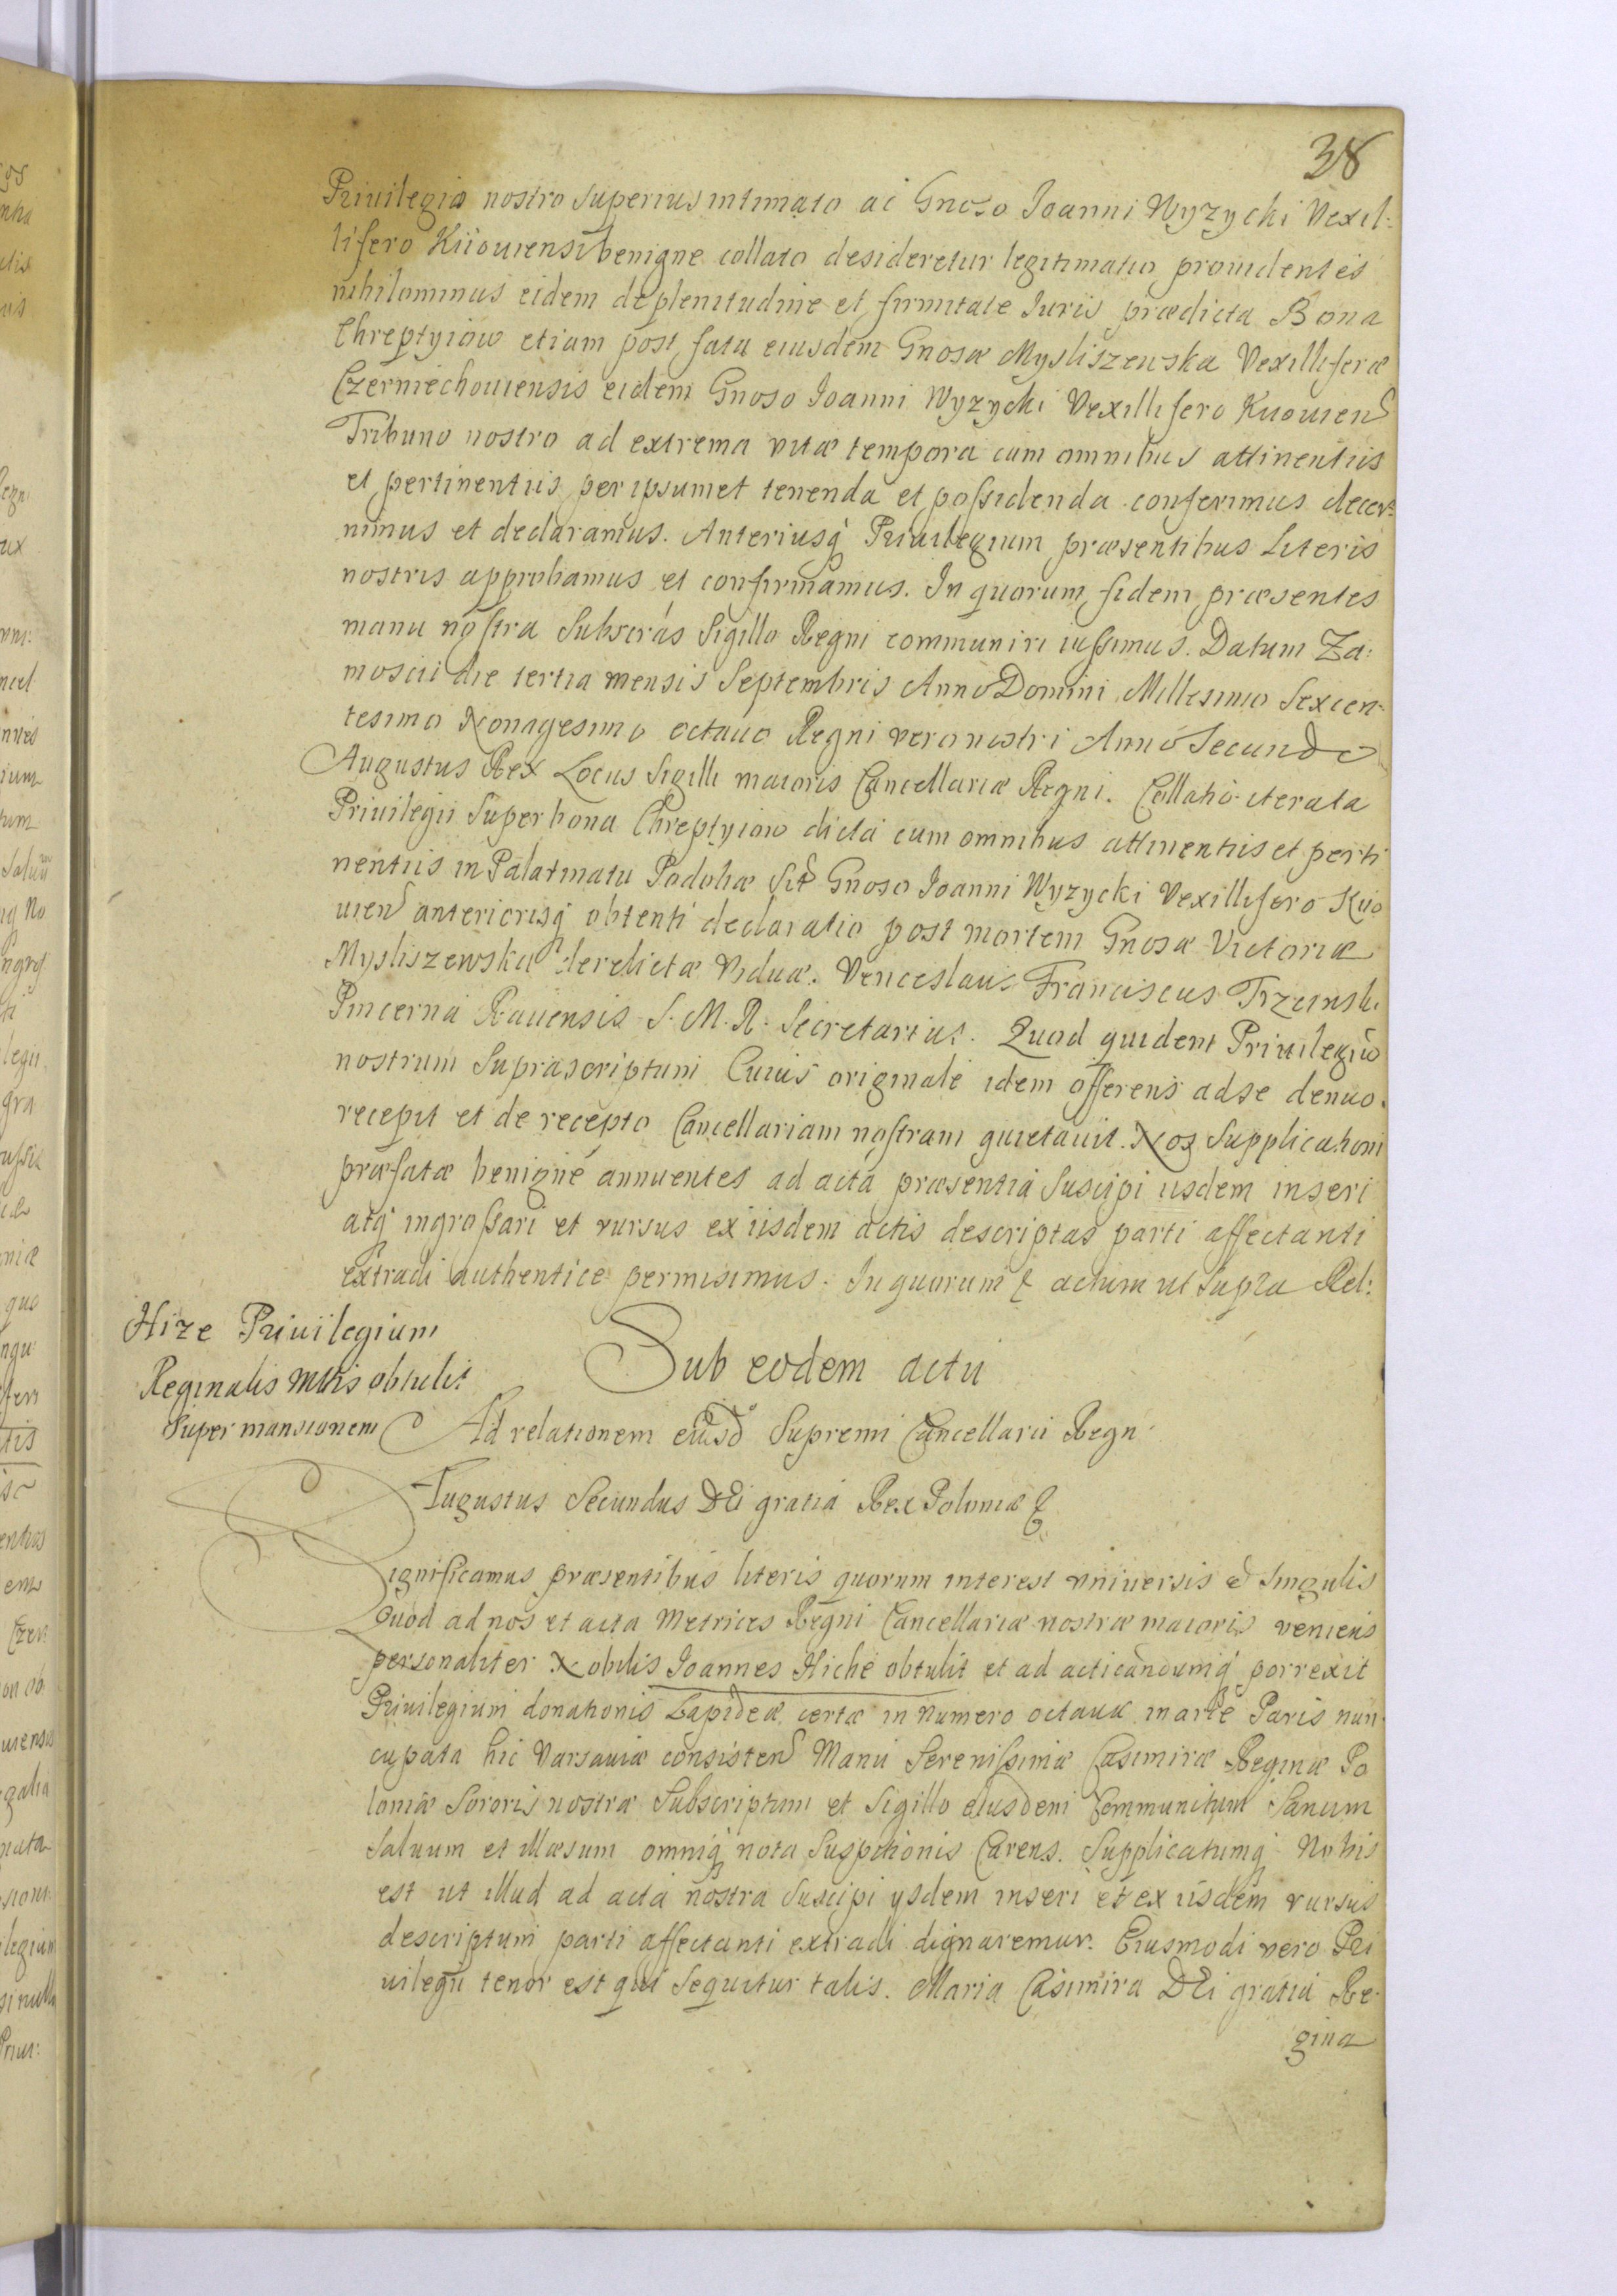 38
Privilegio nostro superius intimato ac Gnoso Joanni Wyzycki Vexil:
lifero Kiiouiensi benigne collato desideretur legitimatio prouidentes
nihilominus eidem de plenitudine et firmitate Iuris prædicta Bona
Chreptyiow etiam post fata eiusdem Gnosæ Mysliszewska Vexilliferæ
Czerniechouiensis eidem Gnoso Joanni Wyzycki Vexillifero Kuouien
Tribuno nostro ad extrema vitæ tempora cum omnibus attinentiis
et pertinentiis per ipsumet tenenda et possidenda conferimus decer:
nimus et declaramus. Anteriusq Priuilegium præsentibus Literis
nostris approbamus et confirmamus. In quorum fidem præsentes
manu nostra Subscrás Sigillo Regni communiri iussimus. Datum Za:
moscii die tertia mensis Septembris Anno Domini Millesimo Sexcen-
tesimo Nonagesimo octauo Regni vero nostri Anno Secundo
Augustus Rex Locus Sigilli maioris Cancellariæ Regni. Collatio iterata
Priuilegii Super bona Chreptyiow dicta cum omnibus attinentiis et perti
nentiis in Palatinatu Podoliæ Sit Gnoso Joanni Wyzycki Vexillifero Kijo
uien anteriorisq obtenti declaratio post mortem Gnosæ Victoriæ
Mysliszewska derelictæ Viduæ. Venceslaus Franciscus Trzcinski
Pincerna Rauensis S. M. R. Secretarius. Quod quidem Priuilegiu
nostrum Suprascriptum Cuius originale idem offerens ad se denuo
recepit et de recepto Cancellariam nostram quietauit. Nos Supplicationi
præfatæ benigne annuentes ad acta præsentia Suscipi iisdem inseri
atq ingrossari et rursus ex iisdem actis descriptas parti affectanti
extradi authentice permisimus. In quorum & actum ut supra Rel:
Hize Priuilegium
Reginalis Mttis obtulit
Super mansionem
Sub eodem actu
Ad relationem eiusd Supremi Cancellarii Regn
Augustus Secundus DEi gratia Rex Poloniæ &
Significamus præsentibus literis quorum interest vniuersis & Singulis
Quod ad nos et acta Metrices Regni Cancellariæ nostræ maioris veniens
personaliter Nobilis Joannes Hiche obtulit et ad acticandumq porrexit
Priuilegium donationis Lapideæ certæ in numero octauæ in arte Paris nun
cupata hic Varsauiæ consisten Manu Serenissimæ Casimiræ Reginæ Po
loniæ Sororis nostræ Subscriptum et Sigillo eiusdem Communitum Sanum
Saluum et illæsum omniq nota Suspitionis Carens. Supplicatumq Nobis
est ut illud ad acta nostra Suscipi ysdem inseri et ex iisdem rursus
descriptum parti affectanti extradi dignaremur. Eiusmodi vero Pri
uilegii tenor est qui sequitur talis. Maria Casimira DEi gratia Re-
gina